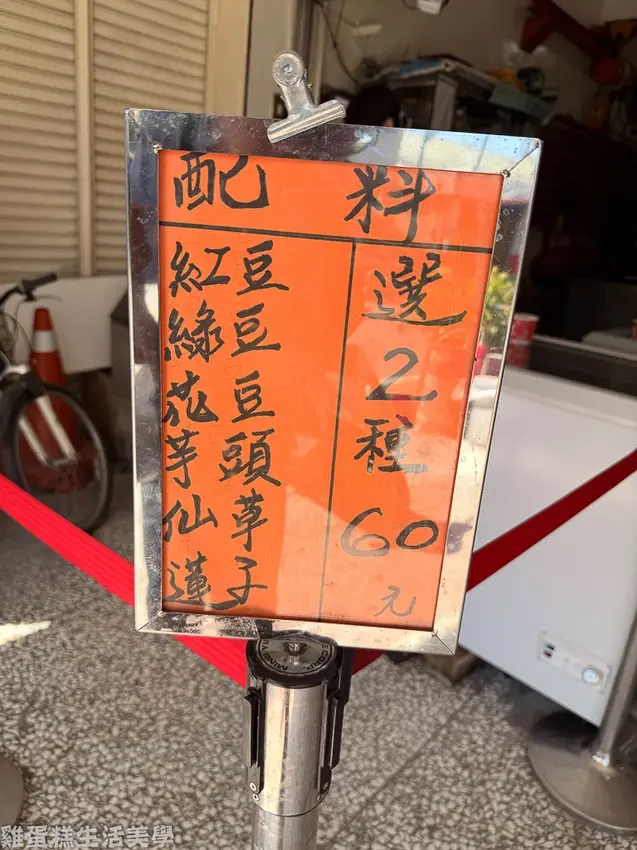 配料
紅豆
綠豆
花豆
芋頭
仙草
蓮子
選2種
60元
雞蛋糕生活美學